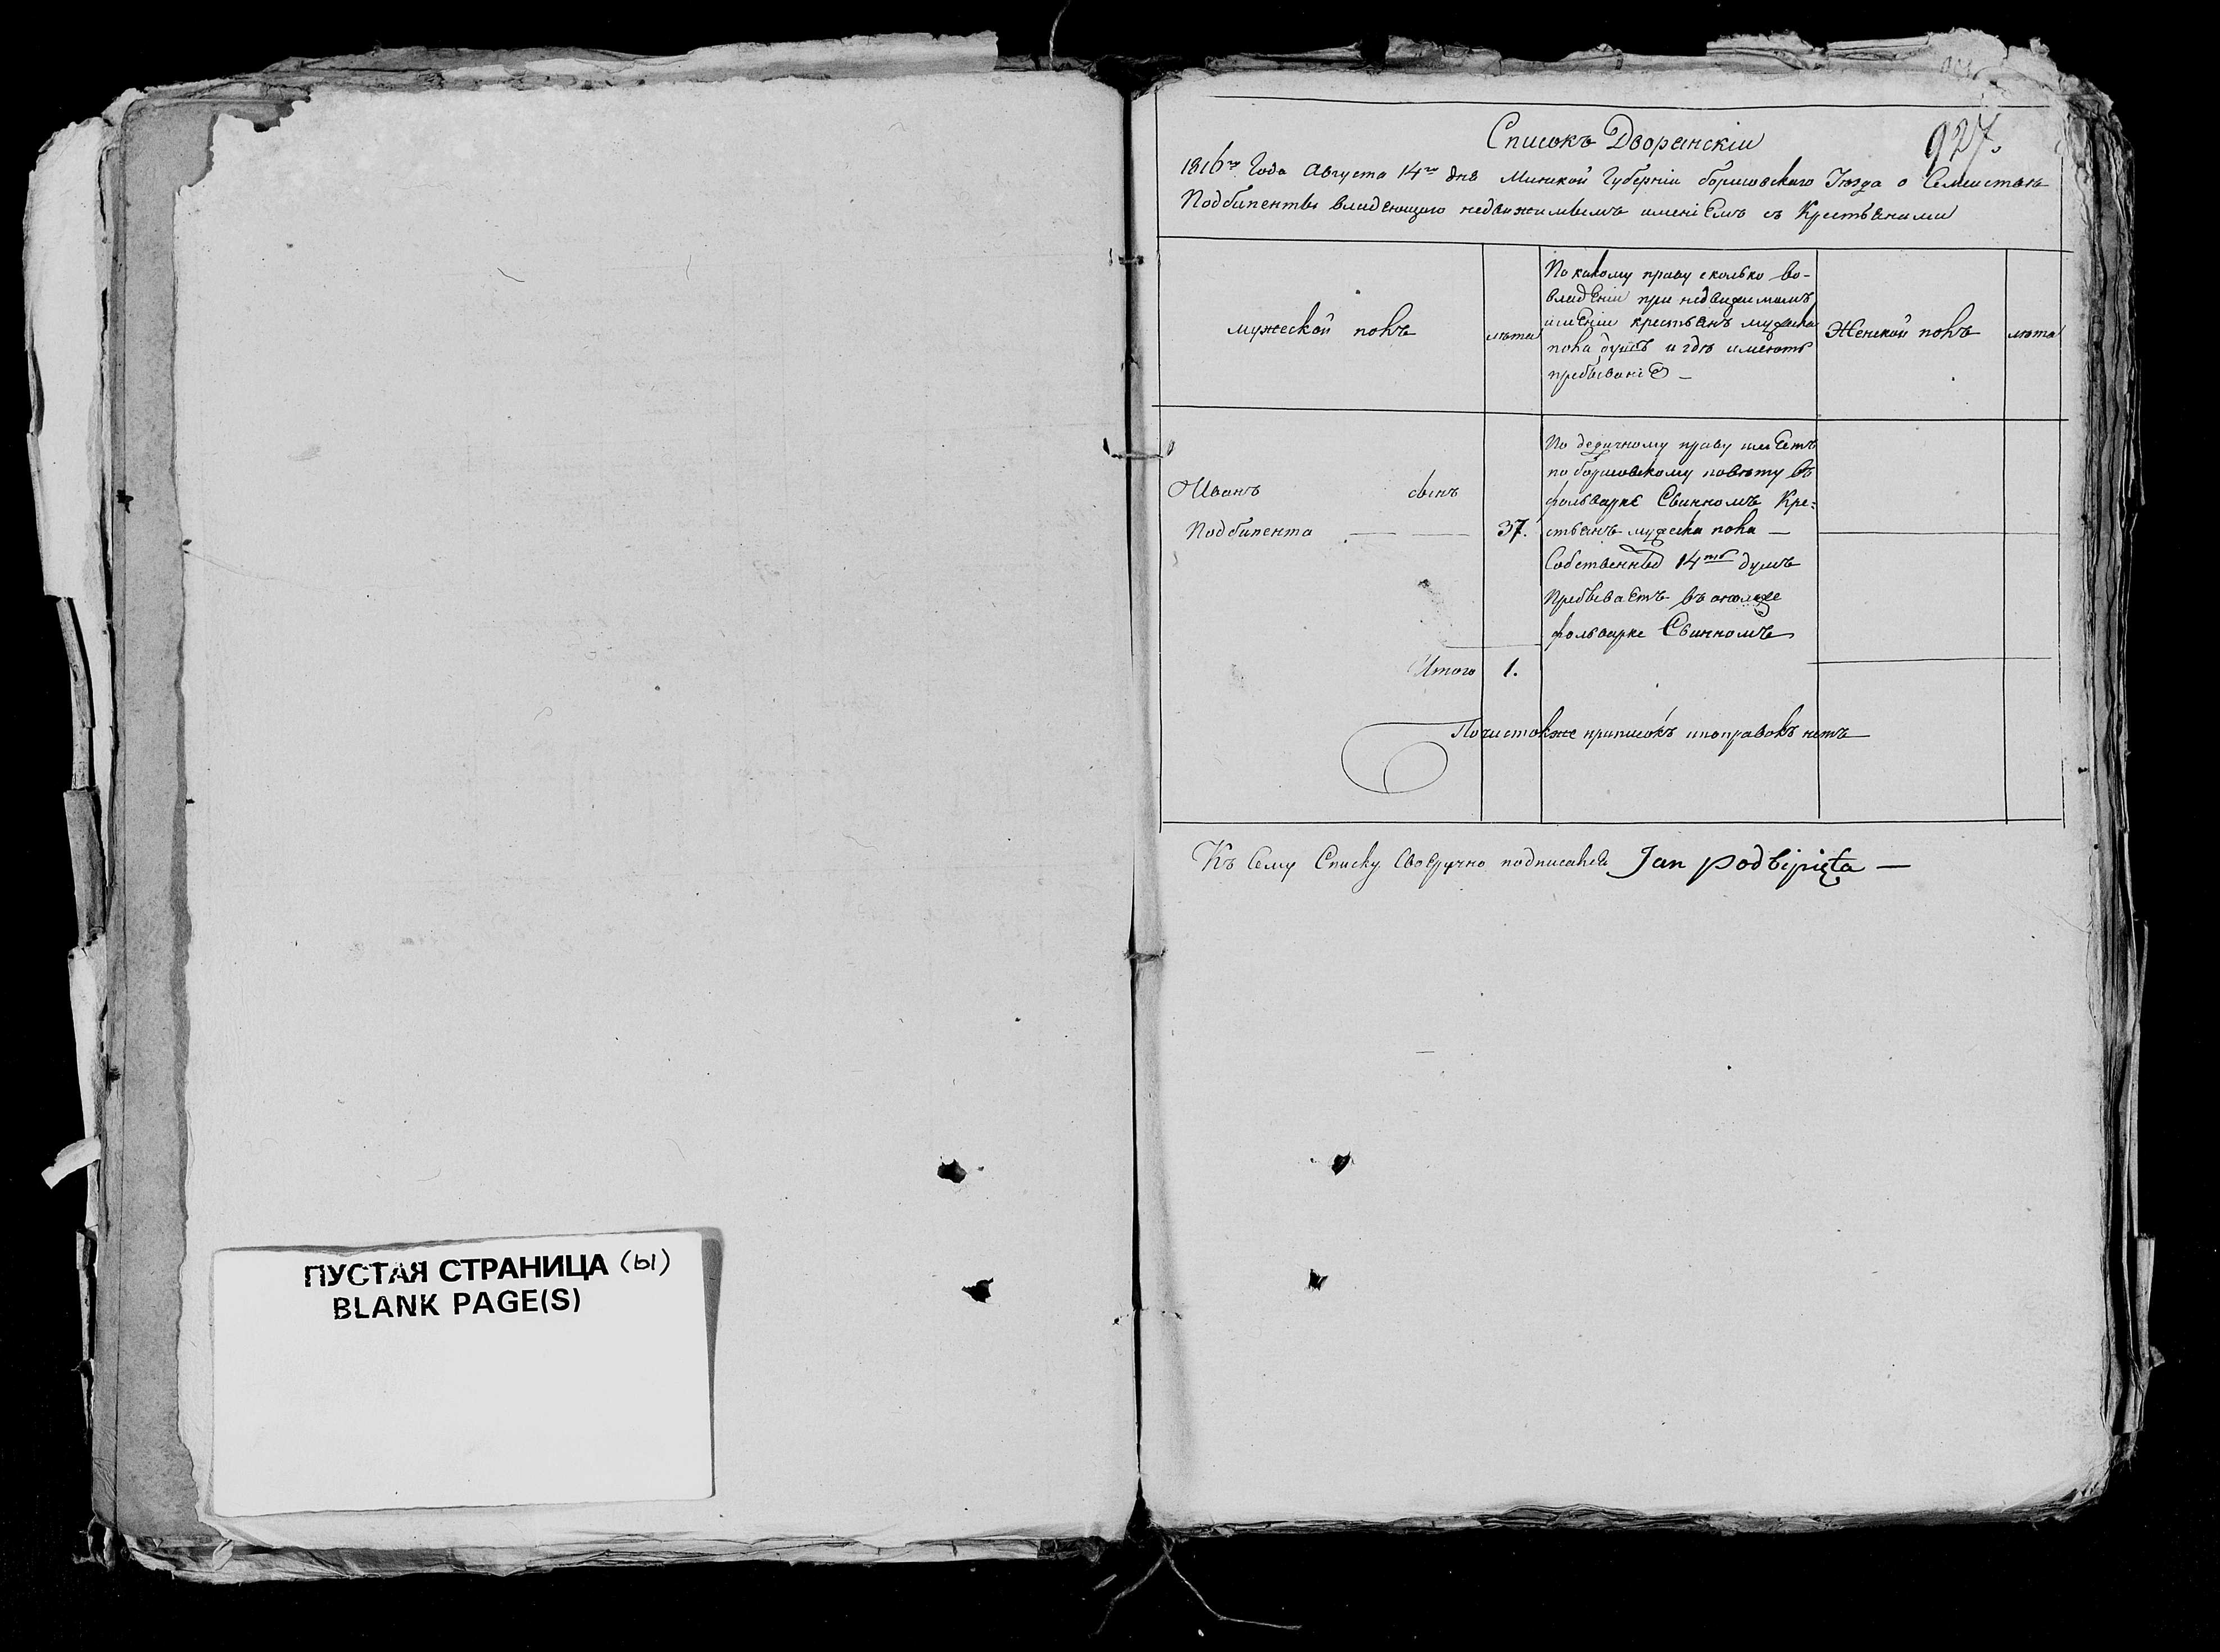 927.
Списокъ Дворянскіи
1816го Года Августа 14го дня Минской Губерніи борисовскаго Уѣзда о Семеиствѣ
Подбипенты владеющаго недвижимымъ имениемъ съ Крестьянами
мужеской полъ
лѣта
По какому праву сколько во-
владеніи при недвижимомъ
имѣніи крестьянъ мужеска
пола душъ и гдѣ имеютъ
пребываніе —
Женской полъ
лѣта
По дедичному праву имеетъ
по борисовскому повѣту въ
фольварке Свинномъ Кре-
стьянъ мужеска пола —
Собственныхъ 14ть душъ
Пребываетъ въ ономже
фольварке Свинномъ
Иванъ сынъ
Подбипента — — 37.
Итого 1.
По чистокже приписокъ ипоправокъ нетъ
Къ Сему Списку Своеручно подписался Jan Podbipięta —
ПУСТАЯ СТРАНИЦА (Ы)
BLANK PAGE(S)